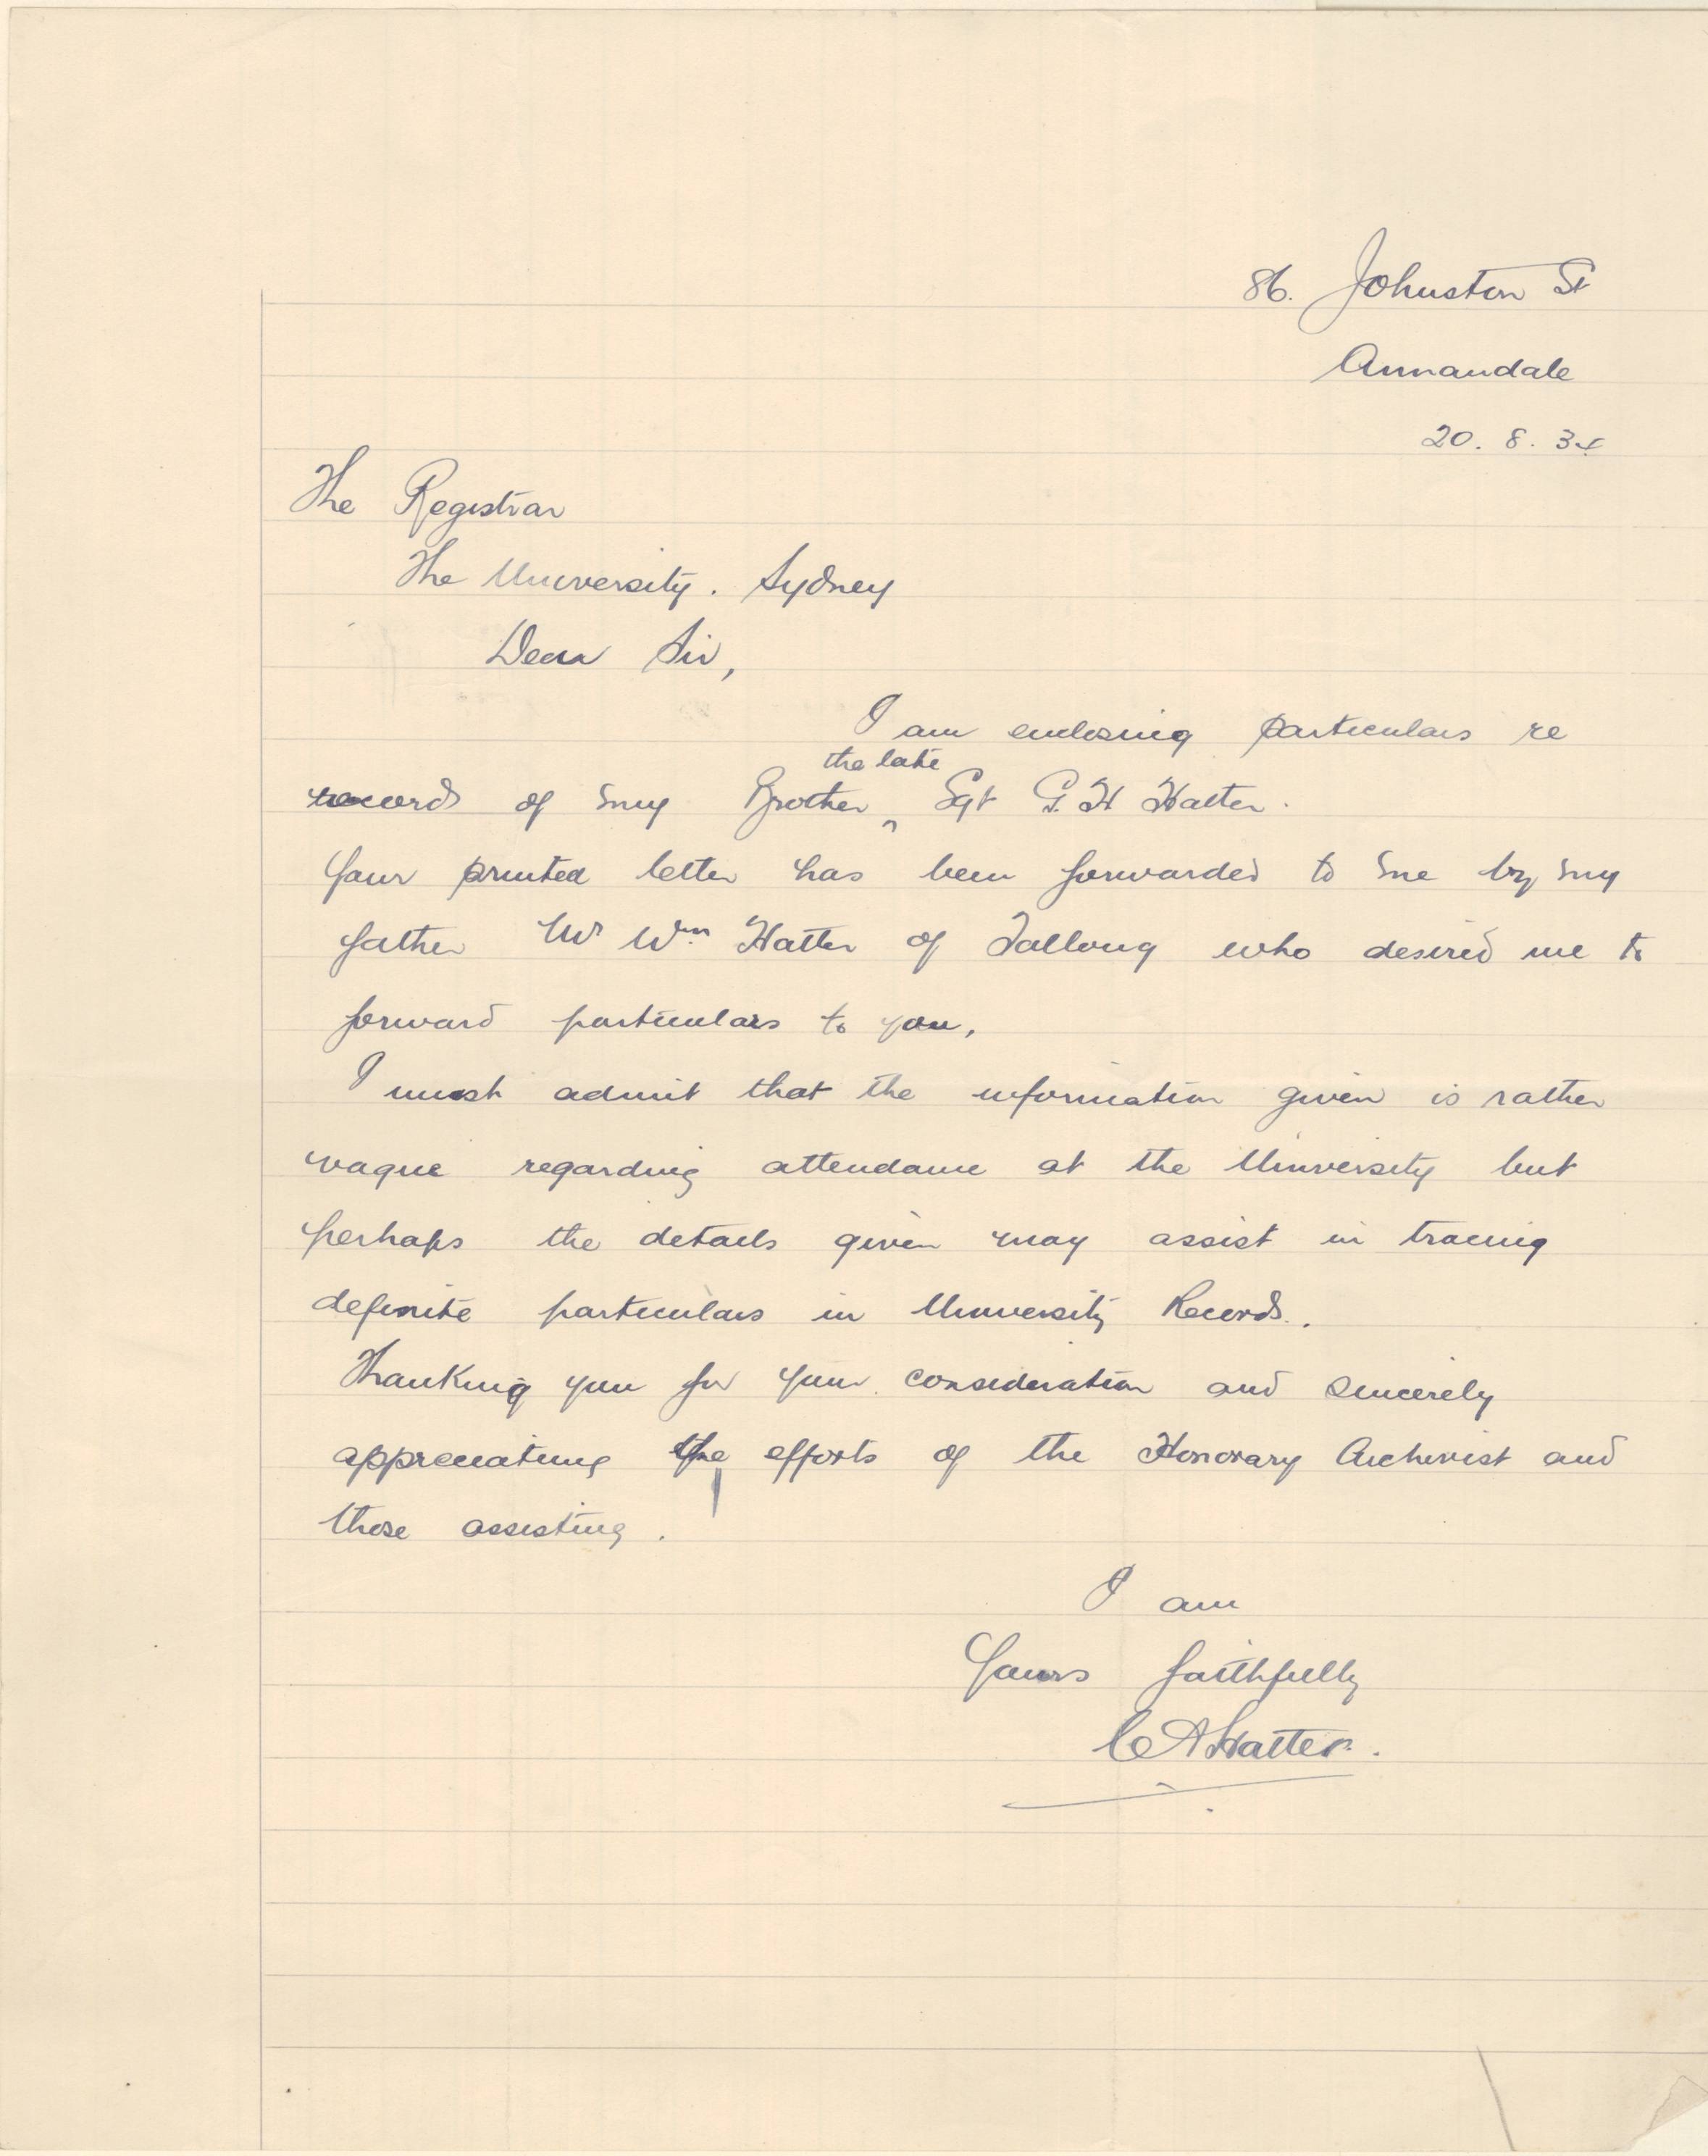 86. Johnston St
Annandale
20. 8. 34
The Registrar
The University. Sydney
Dear Sir,
I am enclosing particulars re
the late
record of my Brother ^ Sgt G. H Hatter.
Your printed letter has been forwarded to me by my
father Mr Wm Hatter of Tallong who desired me to
forward particulars to you,
I must admit that the information given is rather
vague regarding attendance at the University but
perhaps the details given may assist in tracing
definite particulars in University Records.
Thanking you for your consideration and sincerely
appreciating the efforts of the Honorary Archivist and
those assisting.
I am
Yours faithfully
C A Hatter.